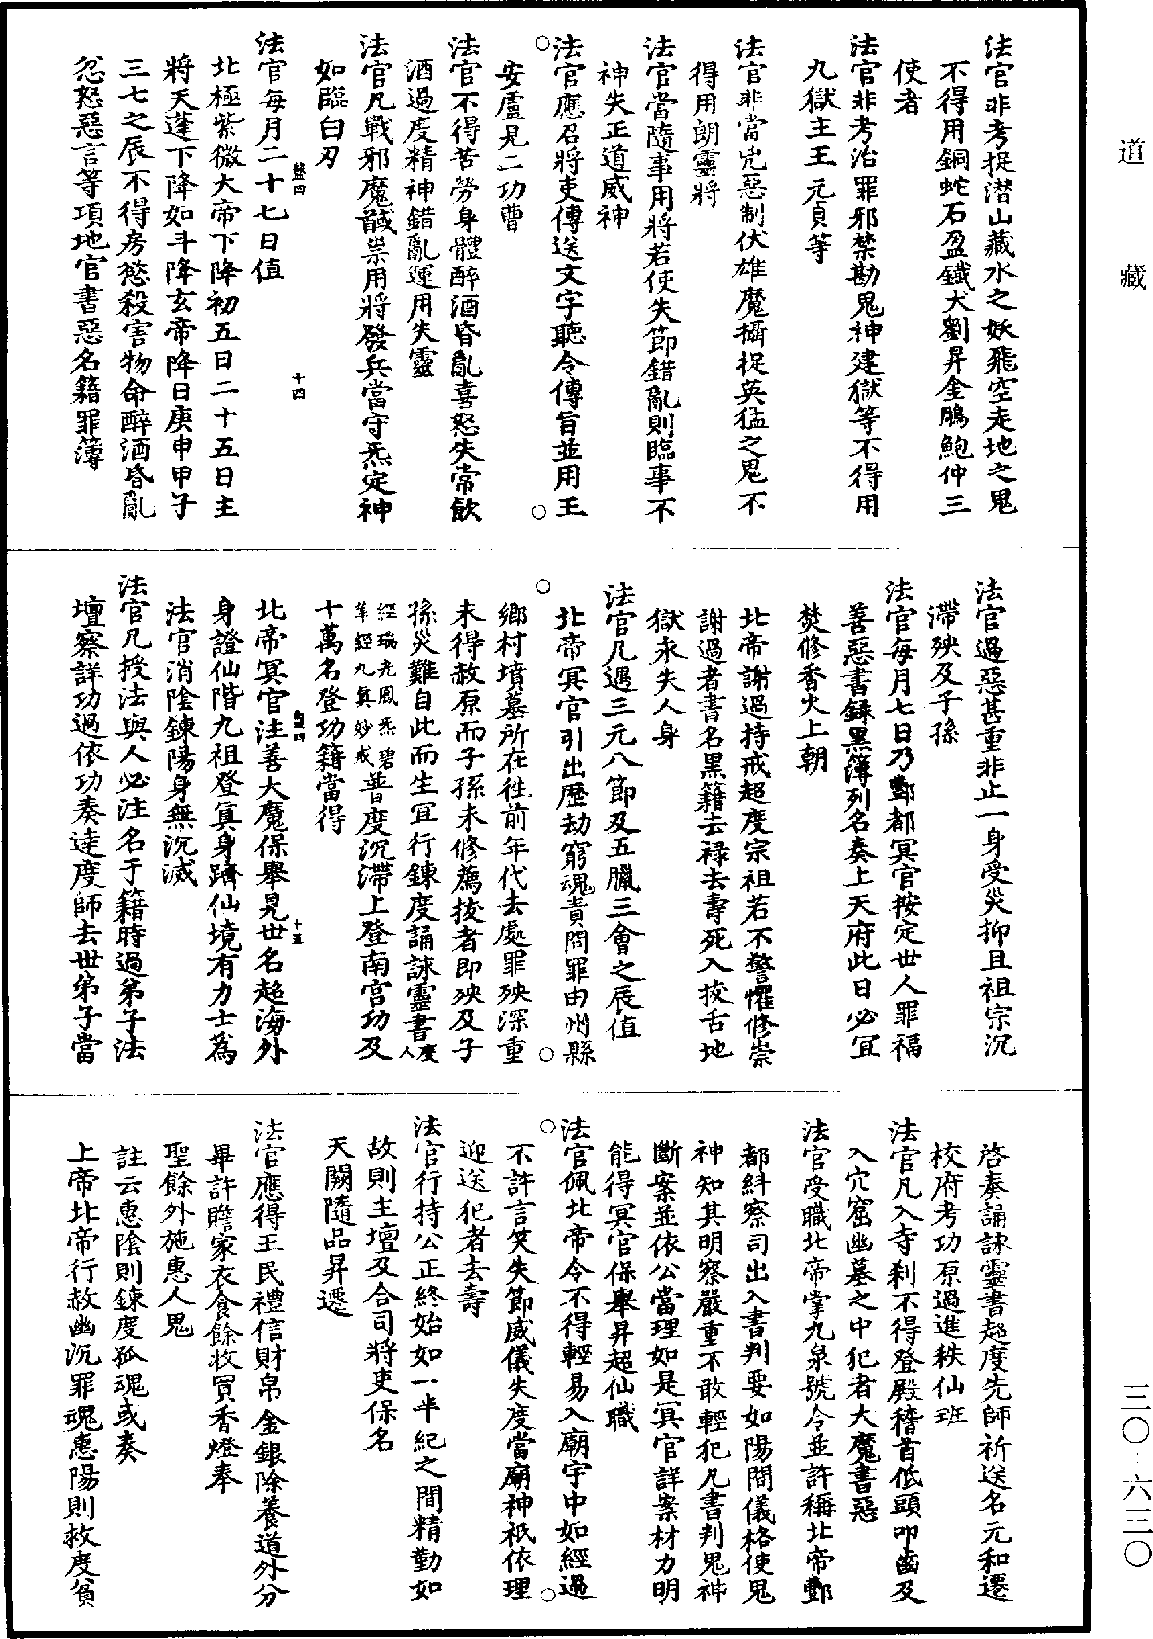 道藏
三〇·六三〇
法官非考捉潛山藏水之妖飛空走地之鬼
不得用銅蛇石盈鐵犬劉昇金鵬鮑仲三
使者
法官非考治罪邪禁勘鬼神建獄等不得用
九獄主王元貞等
法官非當兇惡制伏雄魔攝捉英猛之鬼不
得用朗靈將
法官當隨事用將若使失節錯亂則臨事不
神失正道威神
法官應召將吏傳送文字聽令傳旨並用王
安盧見二功曹
法官不得苦勞身體醉酒昏亂喜怒失常飲
酒過度精神錯亂運用失靈
法官凡戰邪魔馘祟用將發兵當守炁定神
如臨白刃
十四
法官每月二十七日值
北極紫微大帝下降初五日二十五日主
將天蓬下降如斗降玄帝降日庚申甲子
三七之辰不得房慾殺害物命醉酒昏亂
忿怒惡言等項地官書惡名籍罪簿
法官過惡甚重非止一身受災抑且祖宗沉
滯殃及子孫
法官每月七日乃酆都冥官按定世人罪福
善惡書錄黑簿列名奏上天府此日必宜
焚修香火上朝
北帝謝過持戒超度宗祖若不警懼修崇
謝過者書名黑籍去祿去壽死入拔舌地
獄永失人身
法官凡遇三元八節及五臘三會之辰值
北帝冥官引出歷劫窮魂責問罪由州縣
鄉村墳墓所在徃前年代去處罪殃深重
未得赦原而子孫未修薦拔者即殃及子
孫災難自此而生宜行鍊度誦詠靈書度人
經瑞光鳳炁碧
筆經九真妙戒普度沉滯上登南宮功及
十萬名登功籍當得
十五
北帝冥官注善大魔保舉見世名超海外
身證仙階九祖登真身躋仙境有力士為
法官消陰鍊陽身無沉滅
法官凡授法與人必注名于籍時過弟子法
壇察詳功過依功奏達度師去世弟子當
啓奏誦詠靈書超度先師祈送名元和遷
校府考功原過進秩仙班
法官凡入寺剎不得登殿稽首低頭叩齒及
入穴窟幽墓之中犯者大魔書惡
法官受職北帝掌九泉號令並許稱北帝酆
都糾察司出入書判要如陽間儀格使鬼
神知其明察嚴重不敢輕犯凡書判鬼神
斷案並依公當理如是冥官詳案材力明
能得冥官保舉昇超仙職
法官佩北帝令不得輕易入廟宇中如經過
不許言笑失節威儀失度當廟神祇依理
迎送犯者去壽
法官行持公正終始如一半紀之間精勤如
故則主壇及合司將吏保名
天闕隨品昇遷
法官應得王民禮信財帛金銀除養道外分
畢許贍家衣食餘收買香燈奉
聖餘外施惠人鬼
註云惠陰則鍊度孤魂或奏
上帝北帝行赦幽沉罪魂惠陽則救度貧